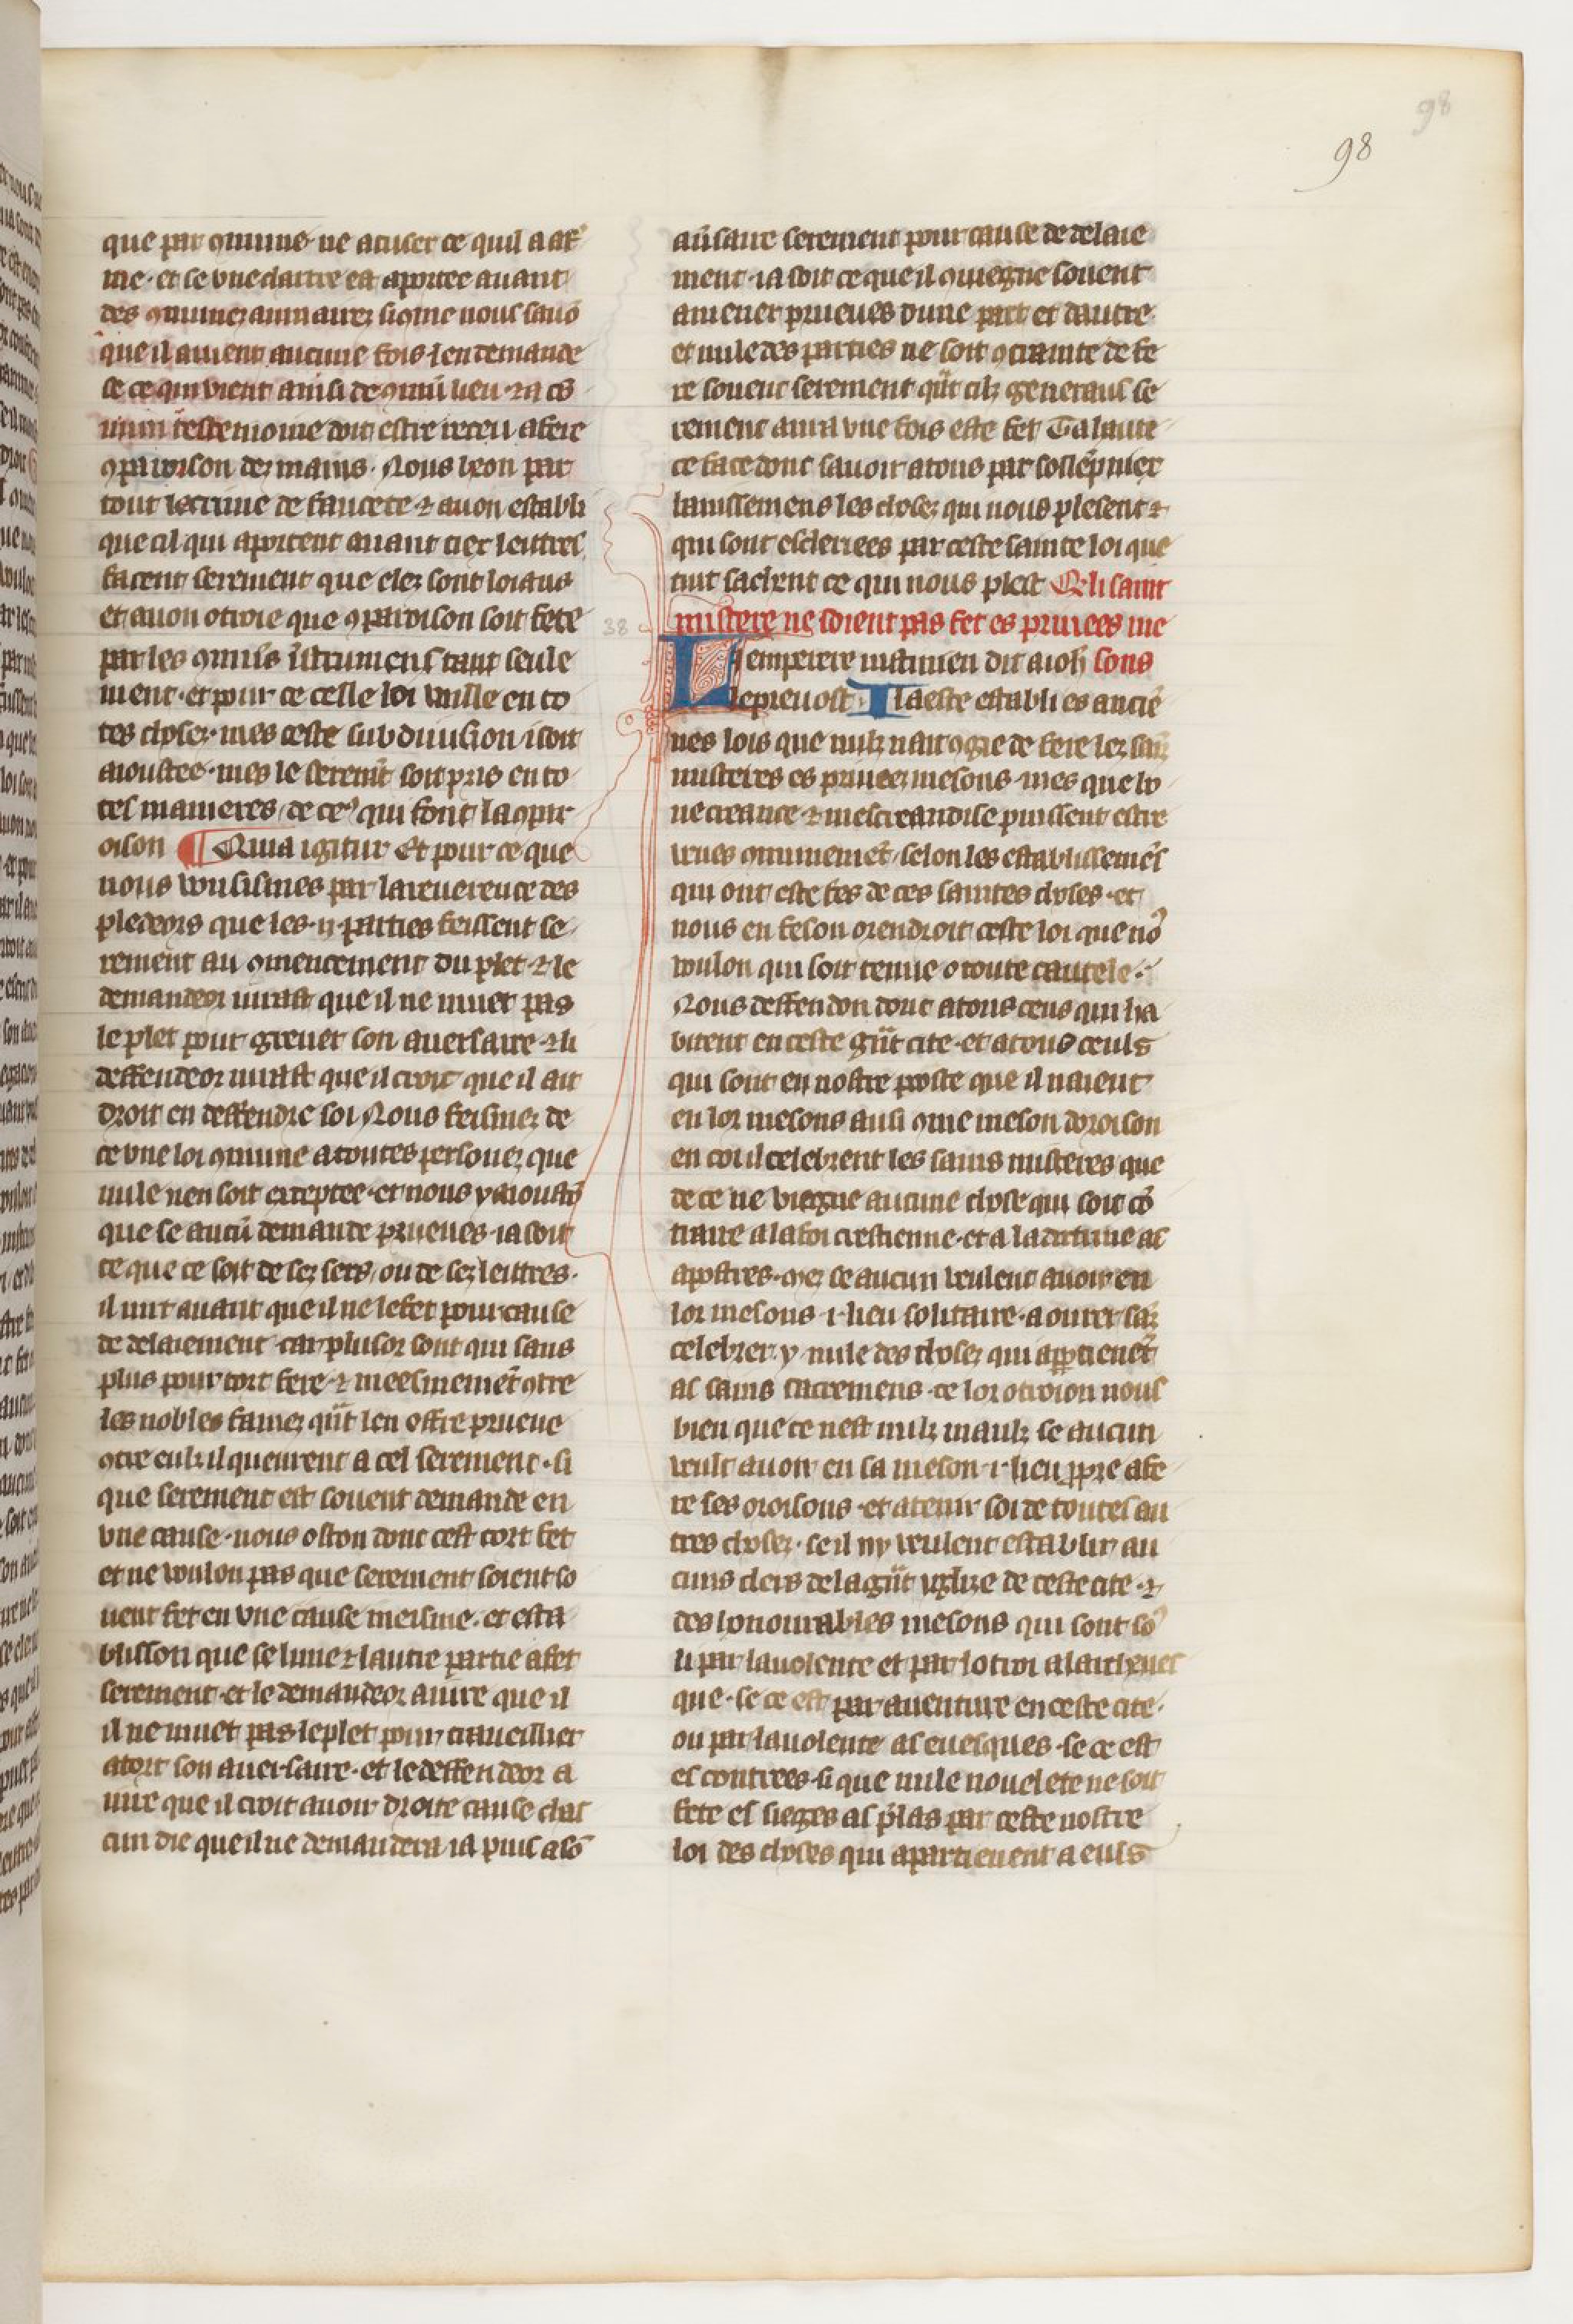 98
98
que par ꝯmune ne acuser ce quil a af
me · et se vne chartre est aportee auant
des ꝯmunez aumairez si ꝯme nous sauō
que il auient aucune fois len demande
se ce qui vient ausi de ꝯmū lieu ⁊ a cō
mun testemoine doit estre receu a fere
ꝯparoison dez mains · Nous veon par
tout le crime de faucete ⁊ auon establi
que cil qui aportent auant tiex lettres
facent serement que elez sont loiaus
et auon otroie que ꝯparoison soit fete
par les ꝯmūs īstrumens tant seule
ment · et pour ce celle loi vaille en to
tes choses · mes ceste subdiuision i soit
aioustee · mes le seremt̄ soit pris en to
tes manieres de ceꝰ qui font la ꝯpar
oison ¶ Quia igitur Et pour ce que
nous vousismes par la reuerence des
pledeors que les · ij · parties feissent se
rement au ꝯmencement du plet ⁊ le
demandeor iurast que il ne muet pas
le plet pour greuer son auersaire ⁊ li
deffendeor iurast que il croit que il ait
droit en deffendre soi Nous feismez de
ce vne loi ꝯmune a toutes personez que
nule nen soit exceptee · et nous y aioustō
que se aucū demande prueues · ia soit
ce que ce soit de sez sers / ou de sez lettres ·
il iurt auant que il ne le fet pour cause
de delaiement · car plusor sont qui sans
plus pour tort fere ⁊ meesmemēt ꝯtre
les nobles famez qūt len offre prueue
ꝯtre eulz il queurent a cel serement · si
que serement est souent demande en
vne cause · nous oston donc cest tort fet
et ne voulon pas que serement soient so
uent fet en vne cause meisme · et esta
blisson que se lune ⁊ lautre partie a fet
serement · et le demandeor a iure que il
il ne muet pas le plet pour traueillier
a tort son auersaire · et le deffendeor a
iure que il croit auoir droite cause chas
cun die que il ne demandera ia puis a sō
aūsaire serement pour cause de delaie
ment · ia soit ce que il ꝯuiegne souent
amener prueues dune part et dautre
et nule des parties ne soit ꝯtrainte de fe
re souent serement qūt cilz generaus se
rement aura vne fois este fet Ta hautē
ce face donc sauoir a tous par sollēpniex
banissemens les chosez qui nous plesent ⁊
qui sont escleriees par ceste sainte loi que
tuit sachent ce qui nous plest Q̄ li saint
38
mistere ne soient pas fet es priuees me
Lemperere iustinien dit a ioh̄ sons
le preuost · Il a este establi es anciē
nes lois que nulz nait ꝯgie de fere lez sais
misteres es priueez mesons · mes que bo
ne creance ⁊ mescreandise puissent estre
veues ꝯmunemēt / selon les establissemēs
qui ont este fes de ces saintes choses · et
nous en feson orendroit ceste loi que noꝰ
voulon qui soit tenue o toute cautele ·
Nous deffendon donc a tous ceus qui ha
bitent en ceste gūt cite · et a tous ceuls
qui sont en nostre poste que il naient
en lor mesons ausi ꝯme meson doroison
en coi il celebrent les sains misteres que
de ce ne viegne aucune chose qui soit cō
traire a la foi crestienne · et a la doctrine as
apostres · Mez se aucun veulent auoir en
lor mesons · i · lieu solitaire · a ourer sāz
celebrer · y · nule des chosez qui apꝑtienēt
as sains sacremens · ce lor otroion nous
bien que ce nest nulz maulz se aucun
veult auoir en sa meson · i · lieu ꝓpre a fe
re ses oroisons · et a tenir soi de toutes au
tres chosez · se il ny veulent establir au
cuns clers de la gūt yglize de ceste cite · ⁊
des honourables mesons qui sont soꝰ
li par la volente et par lotroi a larcheues
que · se ce est par auenture en ceste cite ·
ou par la volente as euesques · se ce est
es contrees · si que nule nouelete ne soit
fete es sieges as p̄las par ceste nostre
loi des choses qui apartienent a euls